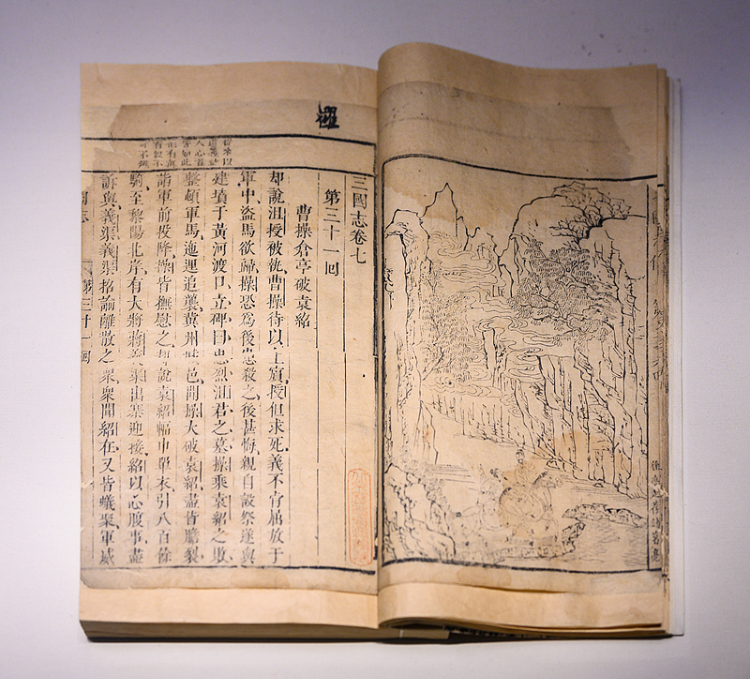 三國志卷七
第三十一回
曹操倉亭破袁紹
却說沮授被執曹操待以上賔授但求死義不肯屈放于
軍中盜馬欲歸操恐爲後患殺之後甚悔親自設祭遂與
建墳于黃河渡口立碑曰忠烈沮君之墓操乘袁紹之敗
整頓軍馬迤運追襲冀州城邑聞操大破袁紹盡皆膽裂
詣軍前投降操皆撫慰之却說袁紹幅巾單衣引八百餘
騎至黎陽北岸有大將蔣義渠出寨迎接紹以心腹事盡
訴與義渠義渠招諭離散之衆衆聞紹在又皆蟻聚軍威
國志
第三十一回